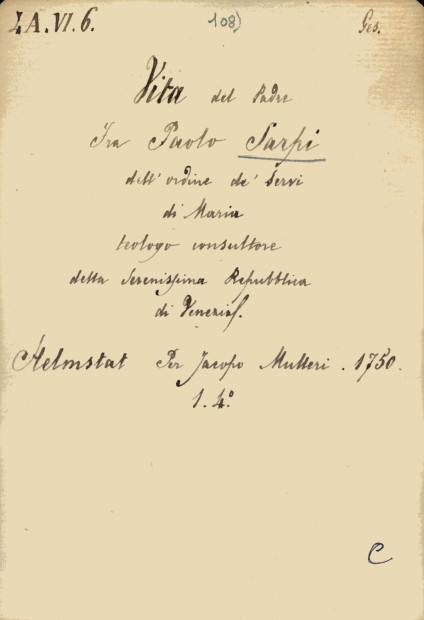 4A.VI.6. 108) Ges.
Vita del Padre
Fra Paolo Sarpi
dell' ordine de' Servi
di Maria
teologo consultore
della Serenissima Repubblica
di Venezia.
Helmstat Per Jacopo Mulleri. 1750.
1. 4°
C